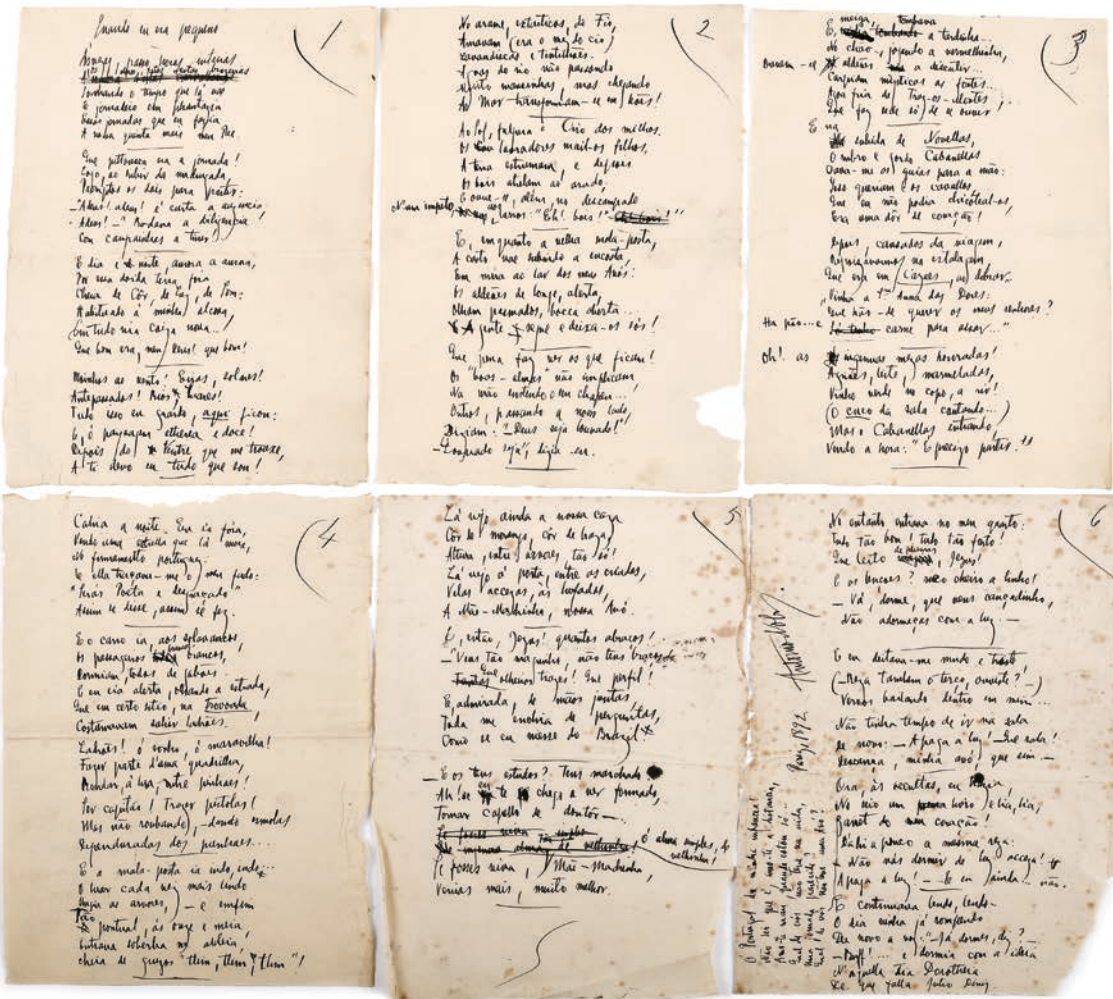 Quando eu era pequeno
1
Às vezes, passo horas inteiras
Sonhando o tempo que lá vae
E jornadeio em phantazia
Essas jornadas que eu fazia
Ao mais meu Pae.
Que pittoresca era a jornada!
Logo, ao subir da madrugada,
Promptos os dois para partir:
- Adeus! adeus! é curta a auzencia
- Adeus! - Rodava a diligencia
Com campainhas a tinir!
E dia e noite, aurora a aurora,
Por essa doida terra fóra
Cheia de Côr, de Luz, de Som:
Habituado á minha alcova,
Em tudo eu via coiza nova...
Que bom era, meu Deus! que bom!
Moinhos ao vento! Eiras, solares!
Antepassados! Rios! Luares!
Tudo isso eu guardo, aqui ficou:
E, ó paysagem etherea e doce!
Depois do Ventre que me trouxe,
A ti devo eu tudo que sou!
2
No arame, extaticos, de Fio,
Amavam (era o mez do cio)
Lavandiscas e tentilhões.
Aguas do rio vão passando
Muito mansinhas, mas chegando
Ao Mar transformam-se em leões!
Ao sol, fulgura o Oiro dos milhos.
Os lavradores mail-os filhos,
A terra estrumam e depois
Os bois atrelam ao arado,
E ouve-se, além, no descampado
N'um impeto, aos berros: "Eh! bois!"
E, emquanto a velha mala-posta,
A custo vae subindo a encosta,
Em mira ao lar dos meus Avós:
Os aldeões de longe, alerta,
Olham pasmados, bocca aberta...
A gente segue e deixa-os sós!
Que pena faz ver os que ficam!
Os não implicam,
Na mão erguendo o seu chapeu...
Outros, passando a nosso lado,
Diziam: "Deus seja louvado!"
- "Louvado seja", dizia eu.
3
E, meiga, tombava a tardinha...
No chão, jogando a vermelhinha,
Ouvem-se aldeões a discutir...
Carpiam misticas as fontes...
Agua fria de Traz-os-Montes,
Que faz sede só de se ouvir
E na subida de Novellas,
O rubro e gordo Cabanellas
Dava-me as guias para a mão:
Isso queriam os cavallos,
Que eu não podia chicoteal-os,
Era uma dôr de coração!
Depois, cansados da viagem,
Repouzavamos na estalagem
Que era em Cazaes, ao dobrar...
Vinha a Sr.a Anna das Dores:
Que hão-de querer os meus senhores?
Ha pão... e carne para assar..."
Oh! as ingenuas mezas honradas!
Aguães, leite, marmeladas,
Vinho verde no copo, a rir!
(O cuco da sala cantando...)
Mas o Cabanellas entrando,
Vendo a hora: "É precizo partir."
4
Cahia a noite. Eu ia fóra,
Vendo uma estrella que lá mora,
No firmamento portuguez:
E ella traçava-me o meu fado:
"Serás Poeta e desgraçado"
Assim se disse, assim se fez.
E o carro ia, aos solavancos,
Os passageiros, brancos,
Dormiam, todos de gabões
E eu ia alerta, olhando a estrada,
Que em certo sitio, na Trovoada
Costumavam sahir ladrões.
Ladrões! ó sonho, ó maravilha!
Fazer parte d'uma quadrilha,
Rondar, á Lua, entre pinhaes!
Ser capitão! Trazer pistolas!
Mas não roubando, - dando esmolas
Dependuradas dos punhaes...
E a mala-posta ia indo, indo...
O luar cada vez mais lindo
Cahia as arvores, - e emfim
Tão pontual, ás onze e meia,
Entrava soberba na aldeia,
Cheia de guizos "tlim, tlim, tlim"!
5
Lá vejo ainda a nossa caza
Côr de morango, côr de braza,
Altiva, entre arvores, tão só!
Lá vejo á porta, entre os creados,
Velas accezas, ás brados,
A Mãe-Madrinha, nossa Avó.
E, então, Jezus! quantos abraços!
- "Vens tão magrinho, não tens braços
Que olheiras trazes! Que perfil!
E, admirada, de mãos juntas,
Toda me enchia de perguntas,
Como se eu viesse do Brazil
- E os teus estudos? Tens marchado?
Ah! se eu te chego a ver formado,
Tomar capello de doutôr -
ó alma simples, de velhinha!
Se fosses viva, Mãe-Madrinha,
Verias mais, muito melhor.
6
No entanto entrava no meu quarto:
Tudo tão bom! tudo tão farto!
Que leito de plumas, Jezus!
E os lençoes? que cheiro a linho!
- Vá, dorme, que vens cançadinho,
Não adormeças com a luz. -
E eu deitava-me mudo e triste,
(- Reza tambem o terço, ouviste? -)
Versos bailando dentro em mim...
Não tinha tempo de ir na sala
De novo: - Apaga a luz! - Que ralla!
Descança, minha avó, que sim. -
Ora, ás occultas, eu trazia,
No seio um livro e lia, lia,
Garrett do meu coração!
D'ahi a pouco a mesma reza:
- Não vás dormir de luz acceza!
Apaga a luz! - E eu ainda... não.
E continuava lendo, lendo -
O dia vinha já rompendo
De novo a voz: "- Já dormes, diz? -
- Bff!... e dormia com a ideia
N'aquella tia Dorothea
De que falla Julio Diniz.
Ó Portugal da minha infancia!
Não sei que é, amo-te a distancia,
Amo-te mais, quando estou só...
Paris 1892
Antonio Nobre.